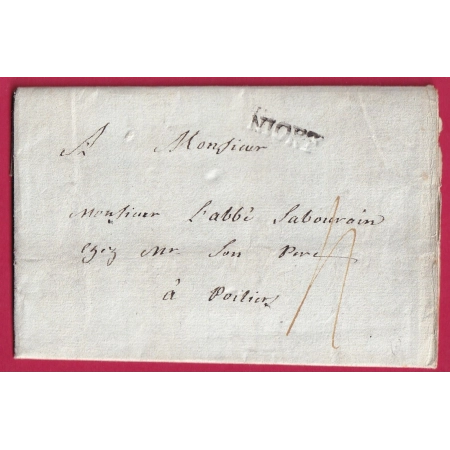 NIORT
A Monsieur
Monsieur L'abbé Sabourain
Chez Mr. Son Pere
à Poitiers
4